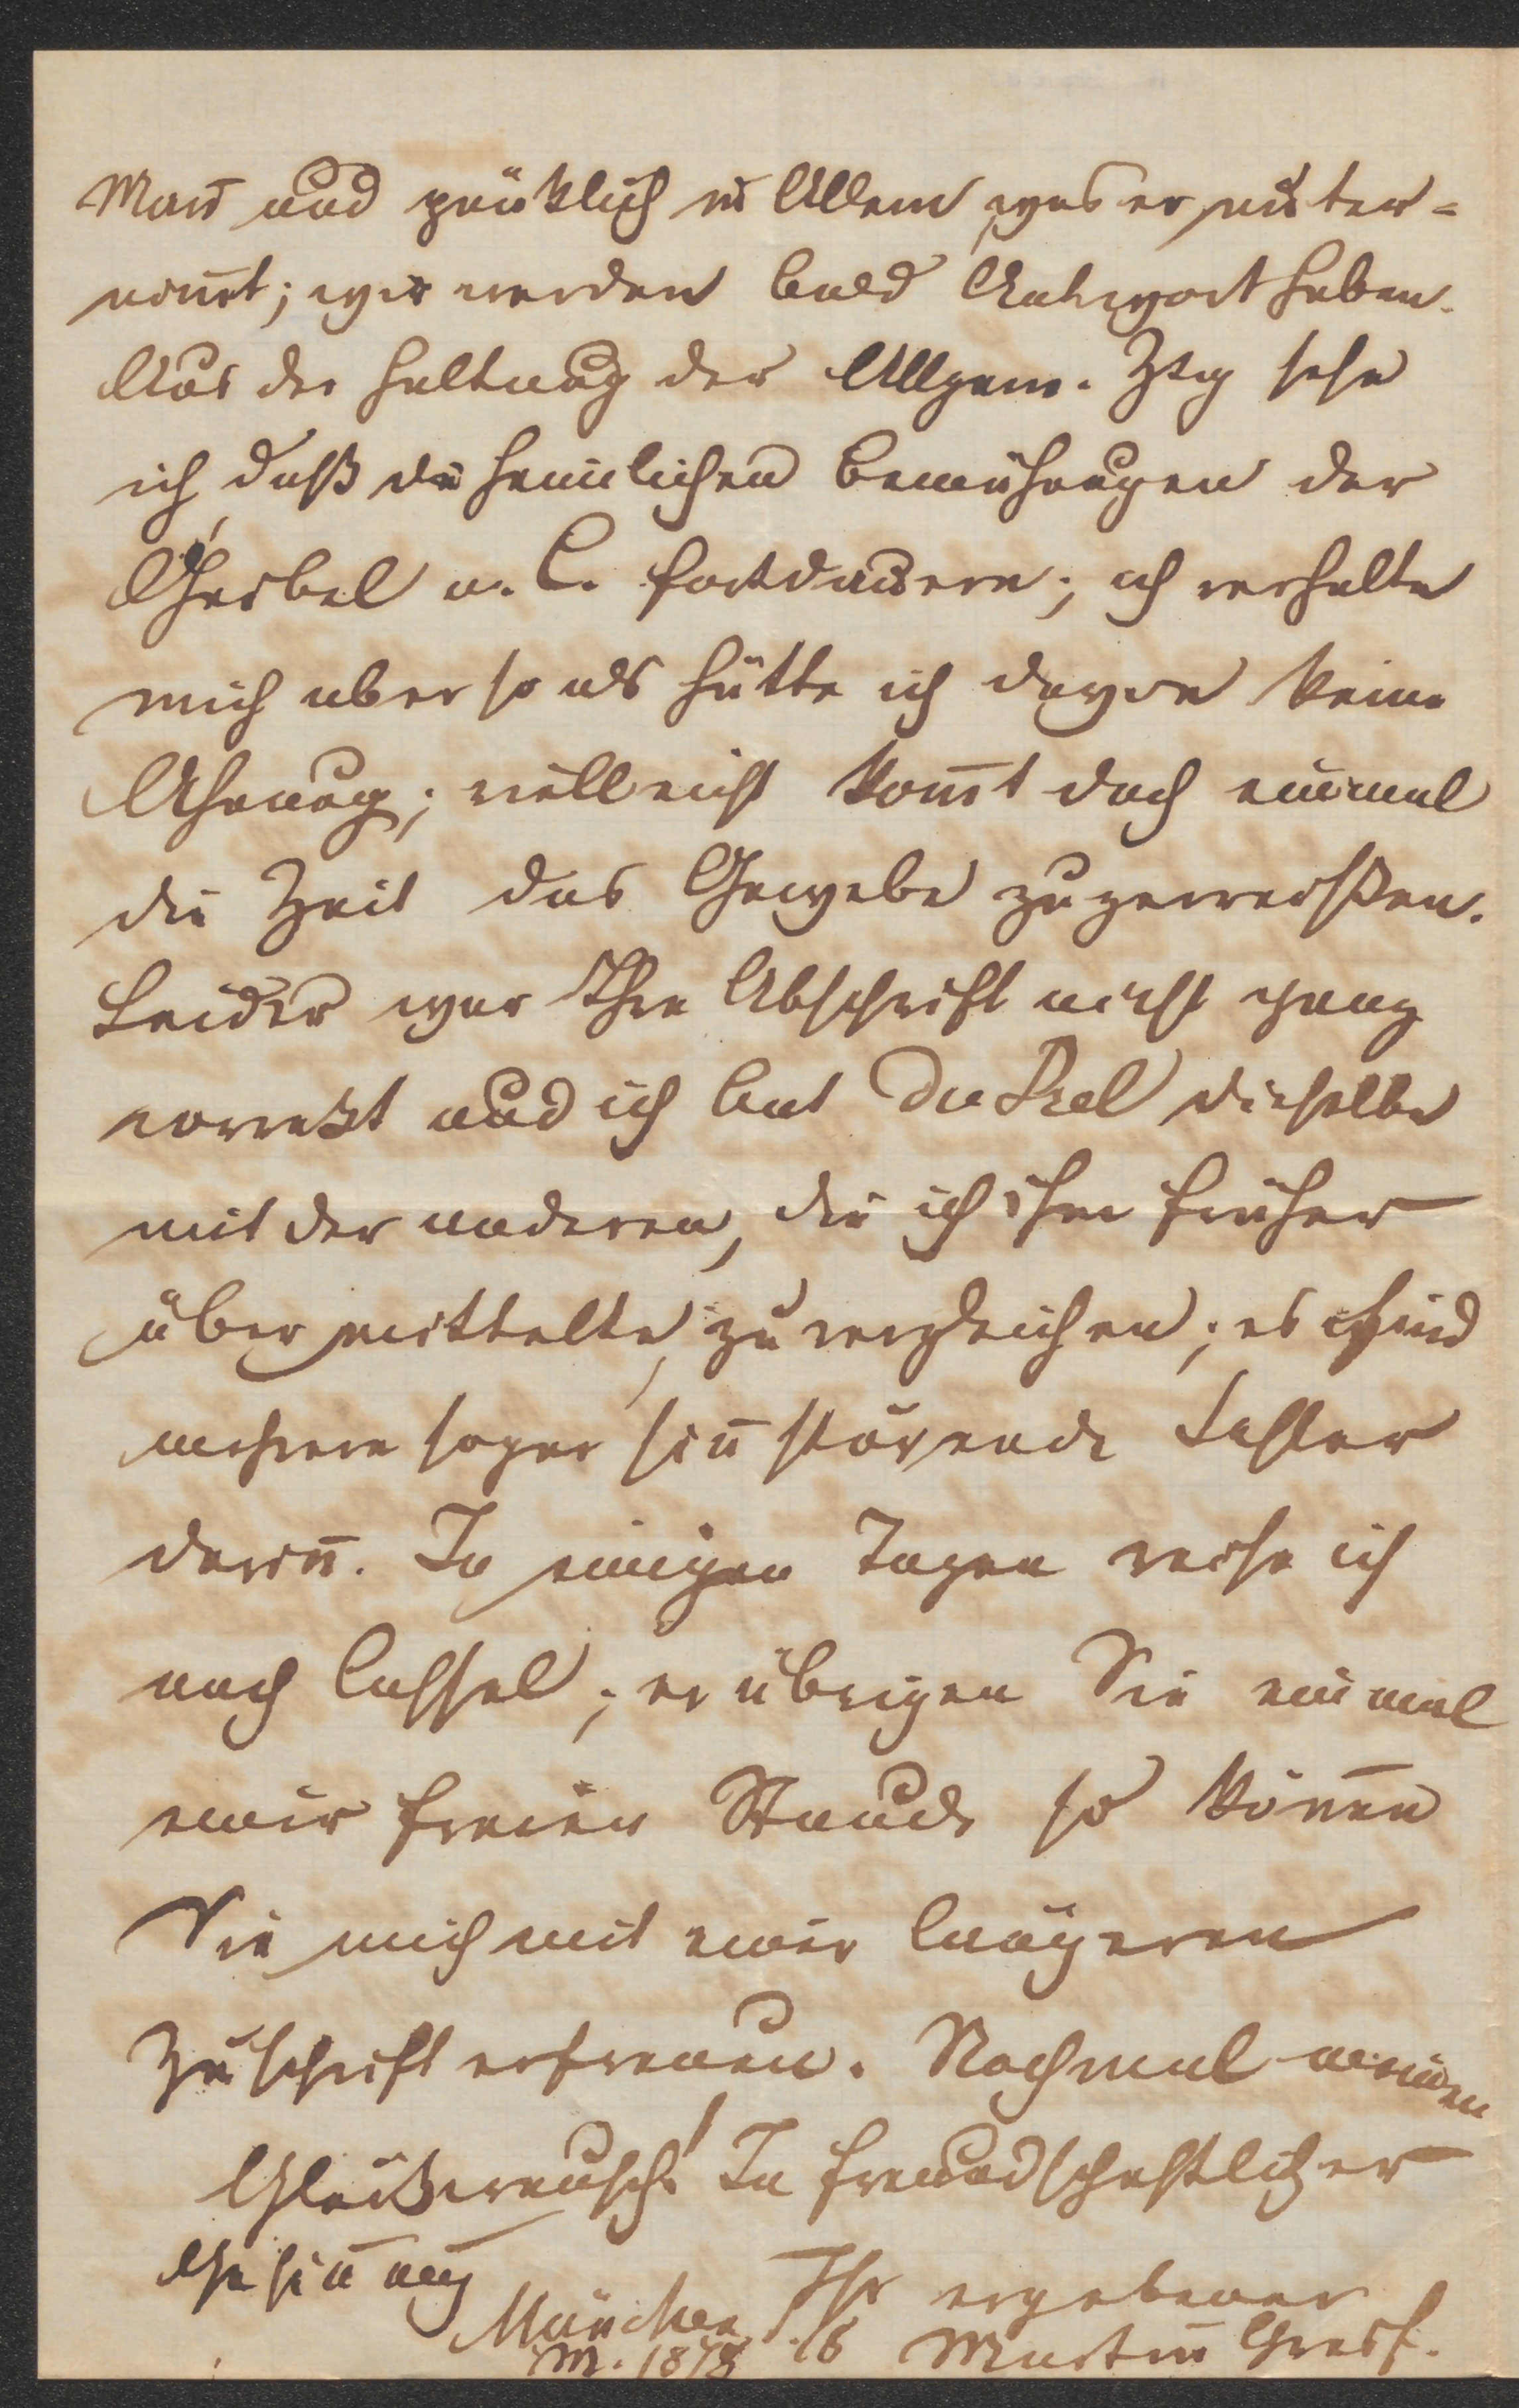 Mañ und pünktlich in Allem, was er unter-
nom̄t; wir werden bald Antwort haben.
Aus der Haltung der Allgem. Ztg sehe
ich, daß die heimlichen Bemühungen der
u. C. fortdauern; ich verhalte
mich aber so als hätte ich davon keine
Ahnung; vielleicht kom̄t doch einmal
die Zeit das Gewebe zu zerreißen.
Leider war Ihre Abschrift nicht ganz
correkt und ich bat Du Prel dieselbe
mit der anderen, die ich ihm früher
übermittelte, zu vergleichen; es sind
mehrere sogar sin̄störende Fehler
darin̄. In einigen Tagen reise ich
nach Cassel; erübrigen Sie einmal
einer freien Stunde so kön̄en
Sie mich mit einer längeren
Zuschrift erfreuen. Nochmal meinen
Glückwunsch! In freundschaftlicher
Gesin̄ung
Ihr ergebener
München 16
M. 1878 Martin Greif.